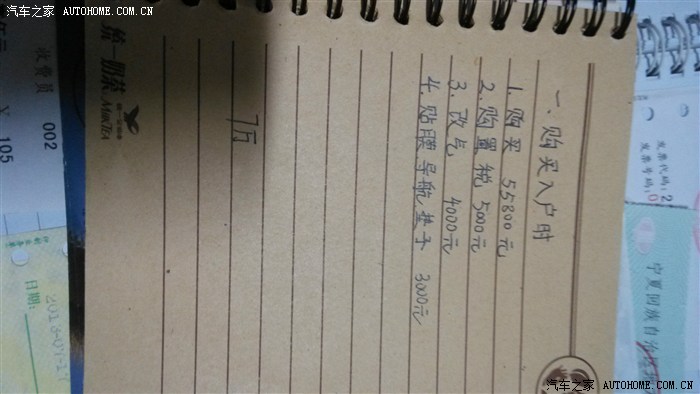 汽车之家 AUTOHOME.COM.CN
一、购买入户时
1、购买 55800元
2、购置税 5000元
3、改气 4000元
4、贴膜 导航 垫子 3000元
7万
统一奶茶
MilkTea
收费员 002
105
日期:
发票代码: 2
发票号码: 0
宁夏回族自治
汽车之家 AUTOHOME.COM.CN